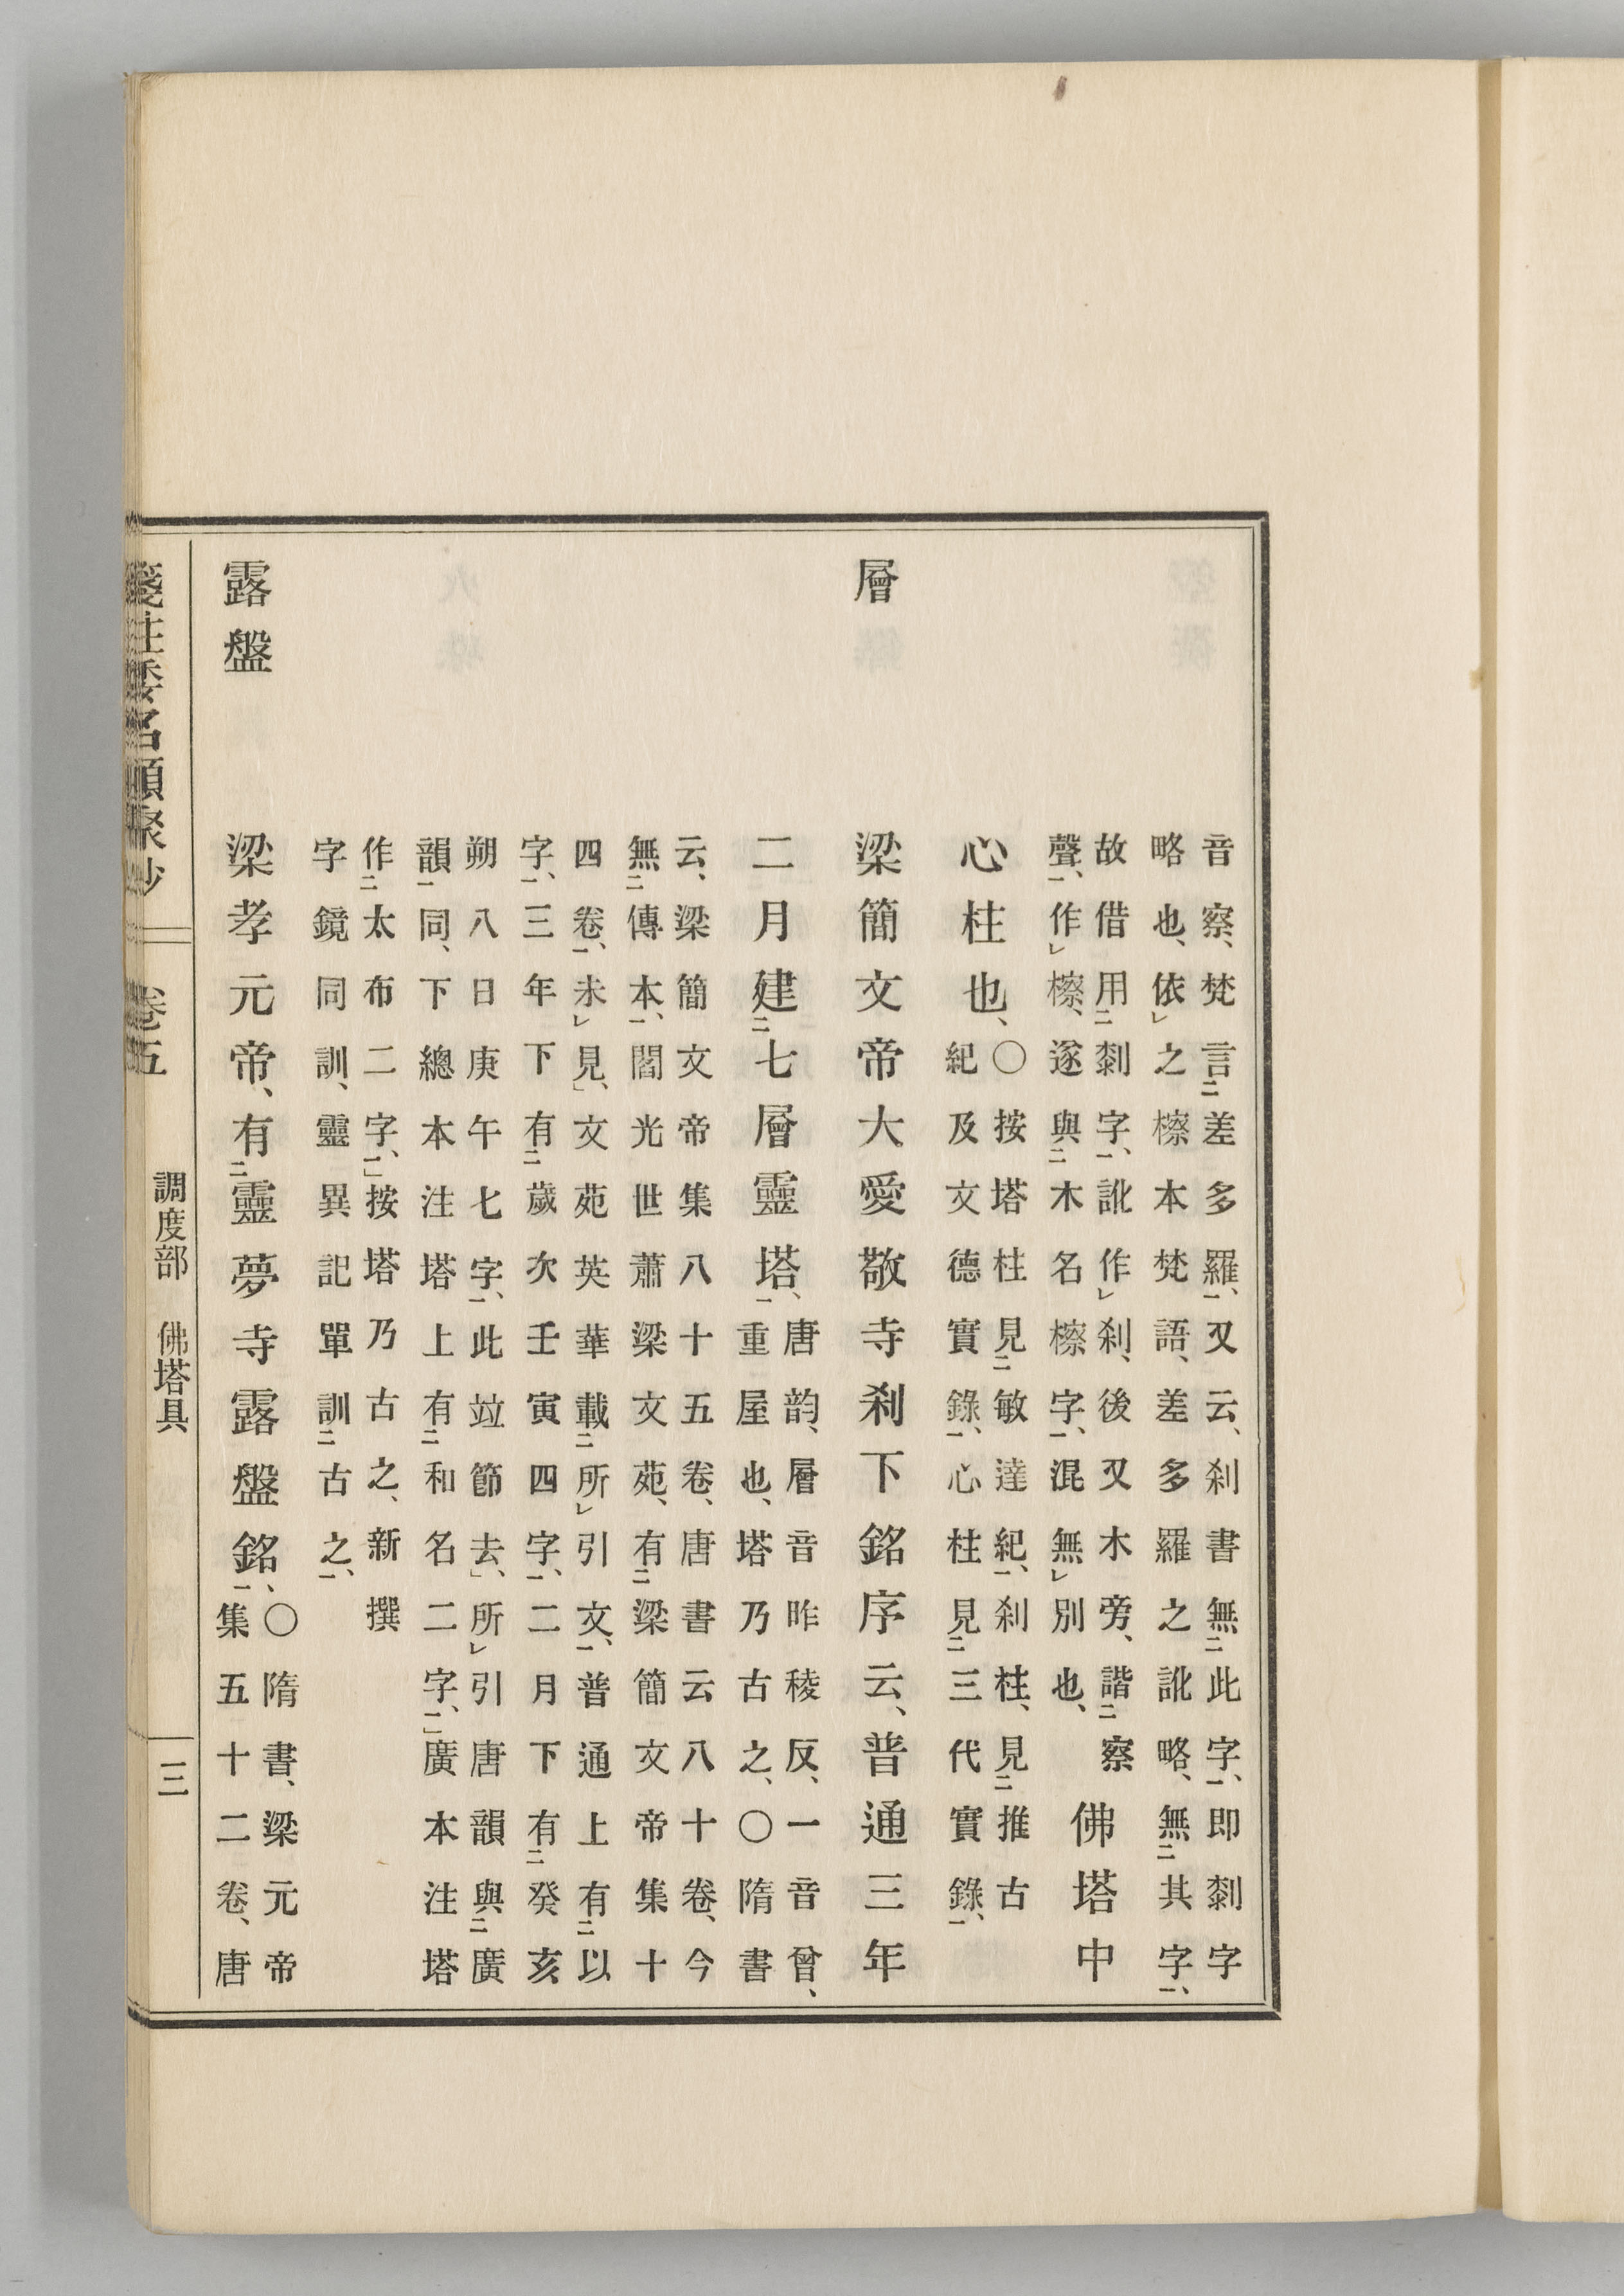 音察、梵言差多羅、又云、刹書無此字、即㓼字
略也、依之檫本梵語、差多羅之訛略、無其字、
故借用㓼字、訛作刹、後又木旁、諧察
聲、作檫、遂與木名檫字、混無別也、
佛塔中
心柱也、
〇按塔柱見敏達紀、刹柱、見推古
紀及文德實錄、心柱見三代實錄、
層
梁簡文帝大愛敬寺刹下銘序云、普通三年
二月建七層靈塔、
唐韵、層音昨稜反、一音曾、
重屋也、塔乃古之、〇隋書
云、梁簡文帝集八十五卷、唐書云八十卷、今
無傳本、閻光世蕭梁文苑、有梁簡文帝集十
四卷、未見、文苑英華載所引文、普通上有以
字、三年下有歲次壬寅四字、二月下有癸亥
朔八日庚午七字、此竝節去、所引唐韻與廣
韻同、下總本注塔上有和名二字、廣本注塔
作太布二字、按塔乃古之、新撰
字鏡同訓、靈異記單訓古之、
露盤
梁孝元帝、有靈夢寺露盤銘、
〇隋書、梁元帝
集五十二卷、唐
箋注倭名類聚抄 卷五 調度部 佛塔具 三